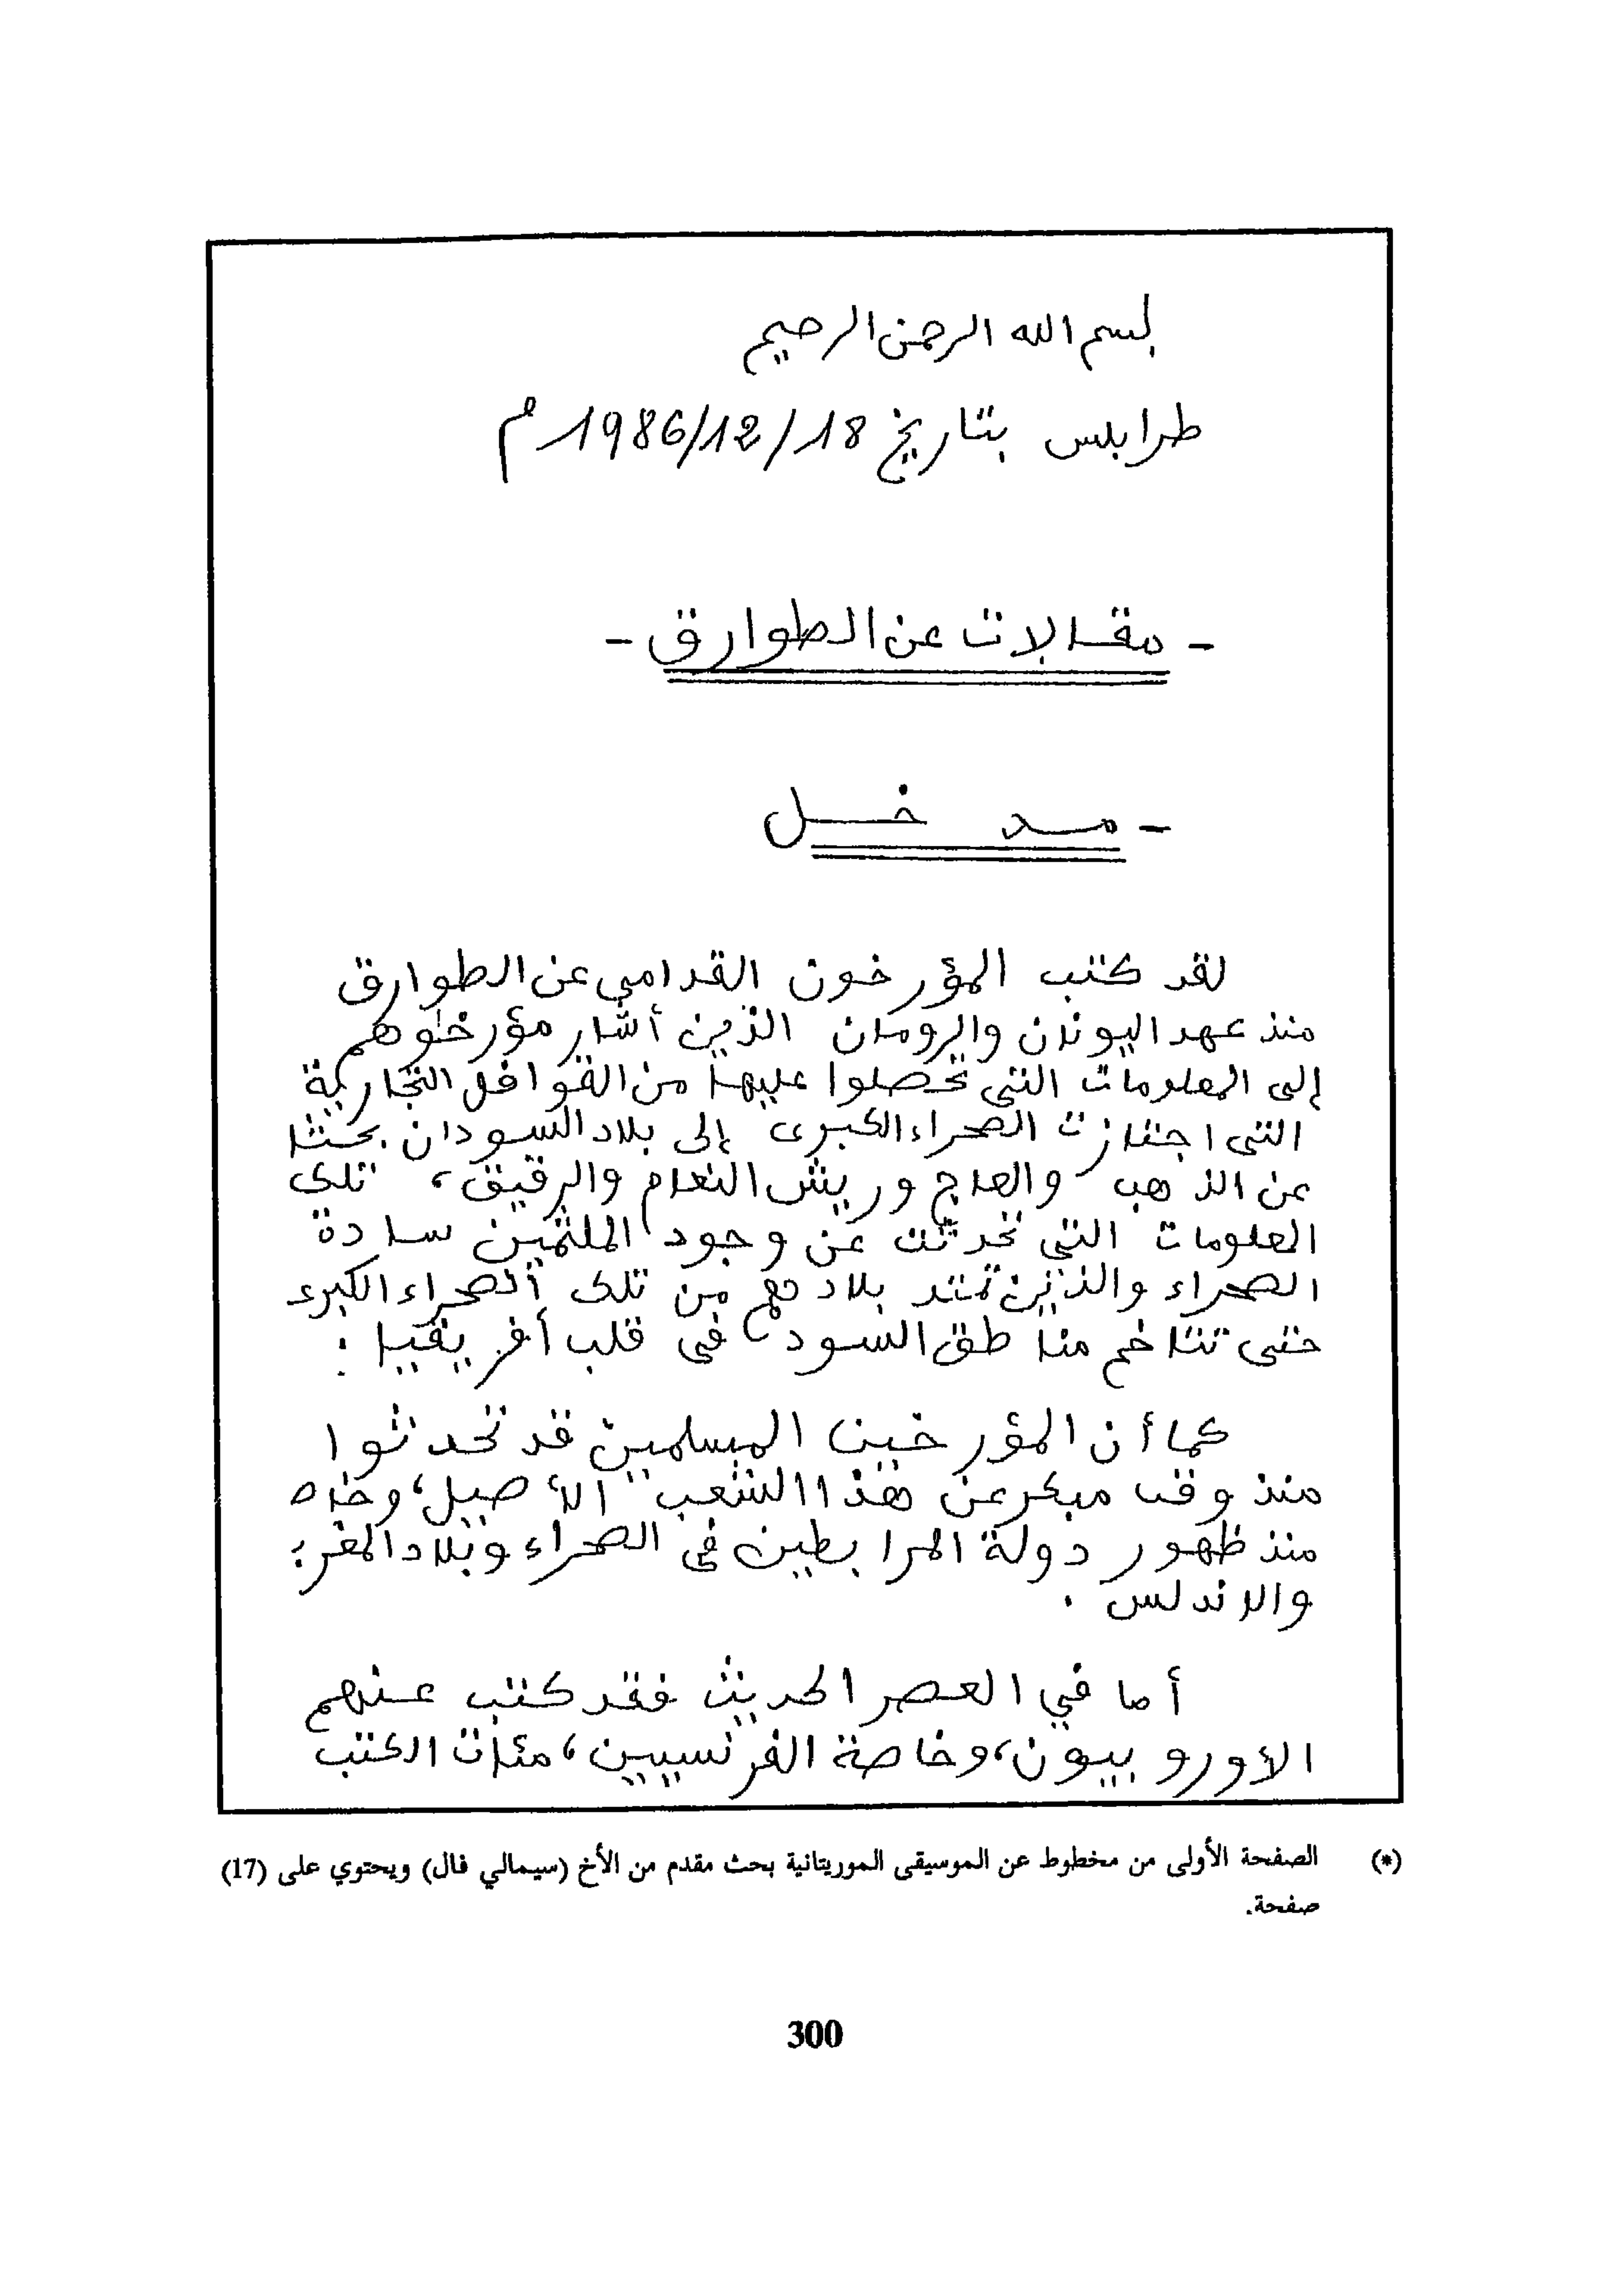 بسم الله الرحمن الرحيم
طرابلس بتاريخ 18/12/1986م
- مقالات عن الطوارق -
- مدخل
لقد كتب المؤرخون القدامى عن الطوارق
منذ عهد اليونان والرومان الذين أشار مؤرخوهم
إلى المعلومات التي تحصلوا عليها من القوافل التجارية
التي اجتازت الصحراء الكبرى إلى بلاد السودان بحثا
عن الذهب والعاج وريش النعام والرقيق، تلك
المعلومات التي تحدثت عن وجود الملثمين سادة
الصحراء والذين تمتد بلادهم من تلك الصحراء الكبرى
حتى تتاخم مناطق السود في قلب أفريقيا :
كما أن المؤرخين المسلمين قد تحدثوا
منذ وقت مبكر عن هذا الشعب الأصيل،
منذ ظهور دولة المرابطين في الصحراء وبلاد
والاندلس .
أما في العصر الحديث فقد كتب عنهم
الأوروبيون، وخاصة الفرنسيين، مئات الكتب
(*) الصفحة الأولى من مخطوط عن الموسيقى الموريتانية بحث مقدم من الأخ (سيمالي فال) ويحتوي على (17)
صفحة.
300